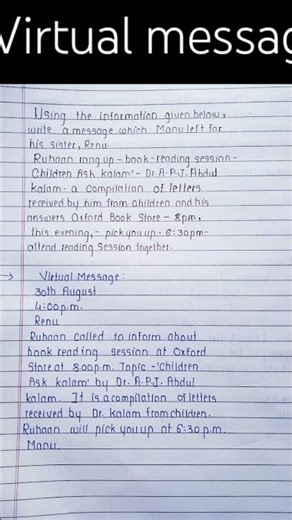 Virtual messag
Using the information given below,
write a message which Manu left for
his sister, Renu.
Ruhaan rang up - book - reading session -
Children Ask kalam' - Dr. A.P.J. Abdul
kalam - a compilation of letters
received by him from children and his
answers Oxford Book Store - 8pm,
this evening, - pick you up - 6:30pm -
attend reading Session together.
→ Virtual Message :
30th August
4:00p.m.
Renu
Ruhaan called to inform about
book reading session at Oxford
Store at 8.00p.m. Topic - 'Children
Ask kalam' by Dr. A.P.J. Abdul
kalam. It is a compilation of letters
received by Dr. kalam from children.
Ruhaan will pick you up at 6:30 p.m.
Manu.